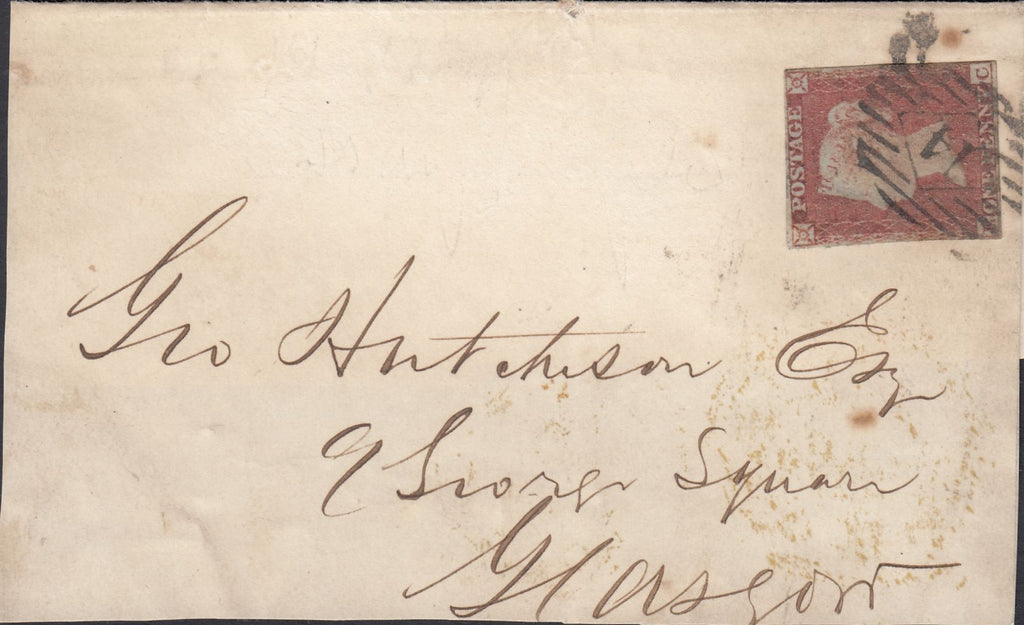 POSTAGE
ONE PENNY
C
Geo Hutcheson Esq
9 George Square
Glasgow